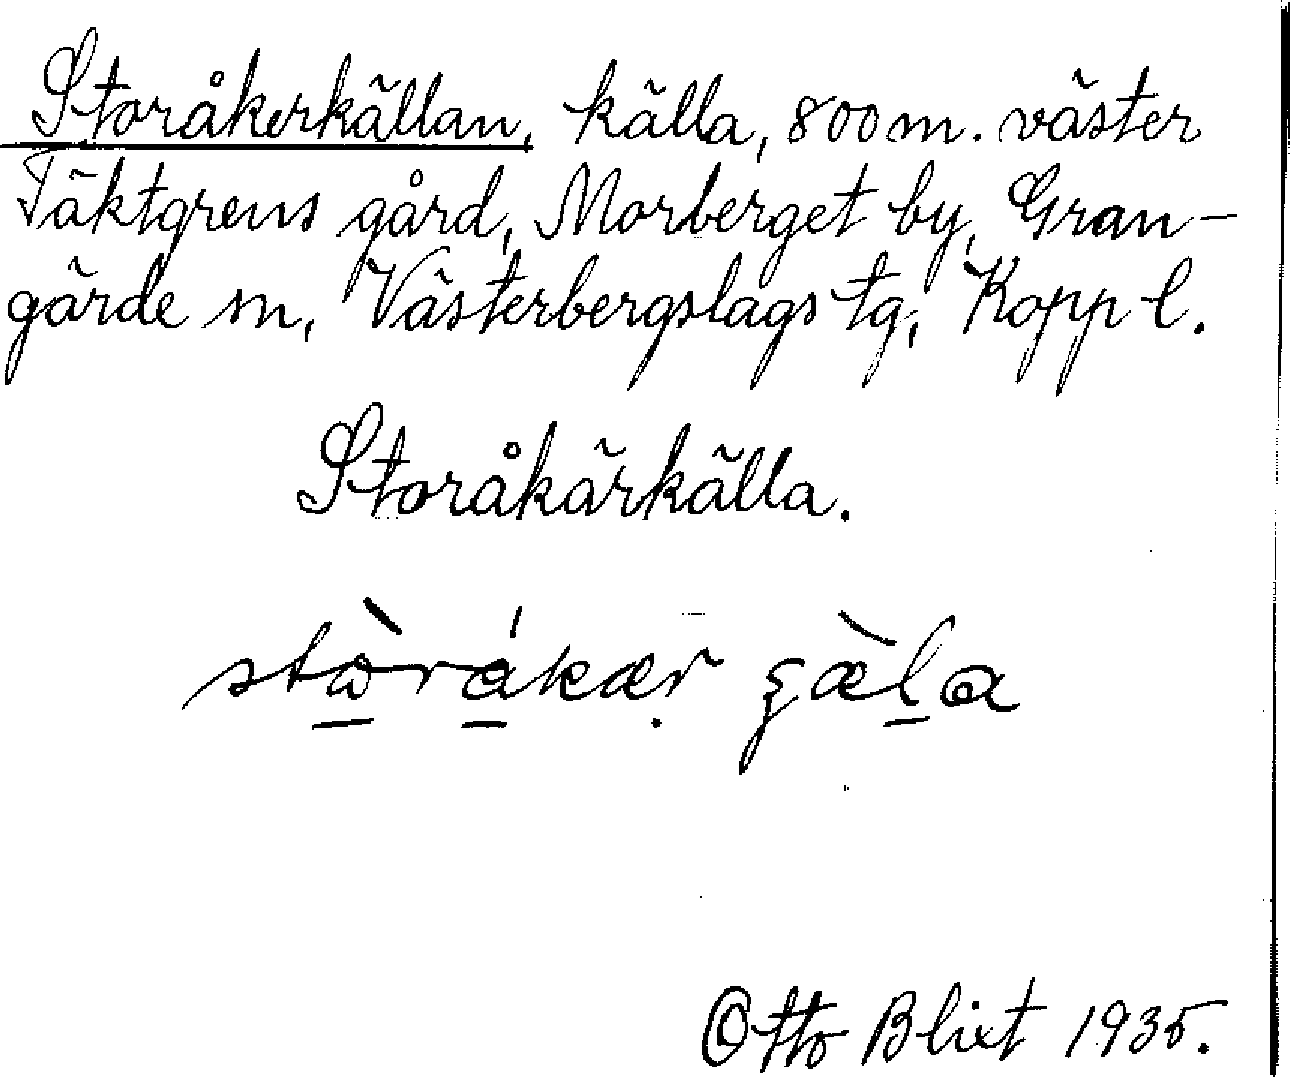 Storåkerkällan, källa, 800 m. väster
Täktgrens gård, Morberget by, Gran-
gärde sn, Västerbergslags tg, Kopp l.
Storåkärkälla.
stòrákær gæ̀la
Otto Blixt 1935.